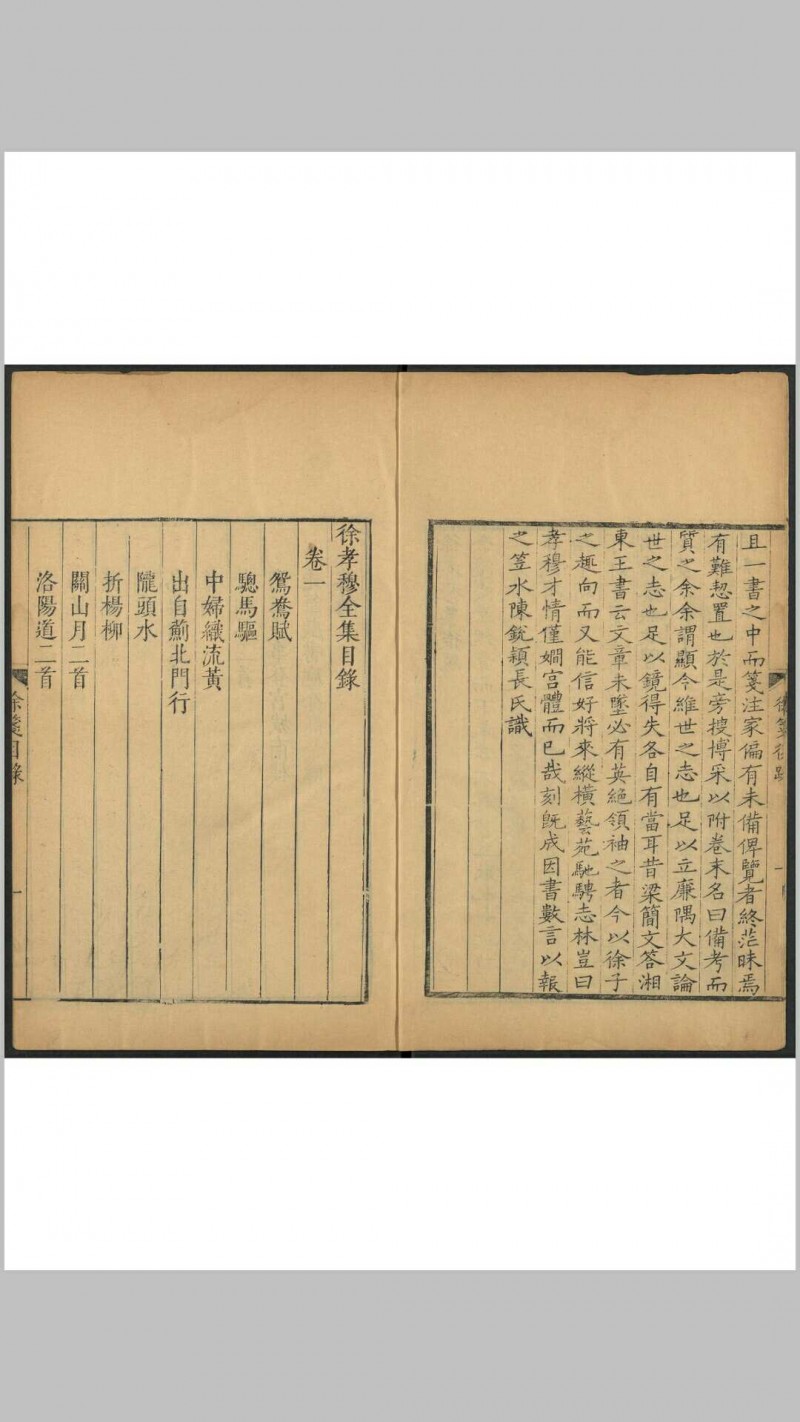 且一書之中而箋注家偏有未備俾覽者終茫昧焉
有難恝置也於是旁搜博采以附卷末名曰備考而
質之余余謂顯今維世之志也足以立廉隅大文論
世之志也足以鏡得失各自有當耳昔梁簡文答湘
東王書云文章未墜必有英絕領袖之者今以徐子
之趣向而又能信好將來縱橫藝苑馳騁志林豈曰
孝穆才情僅嫺宮體而已哉刻既成因書數言以報
之笠水陳銳穎長氏識
徐孝穆全集目錄
卷一
鴛鴦賦
驄馬驅
中婦織流黃
出自薊北門行
隴頭水
折楊柳
關山月二首
洛陽道二首
徐箋目錄
一